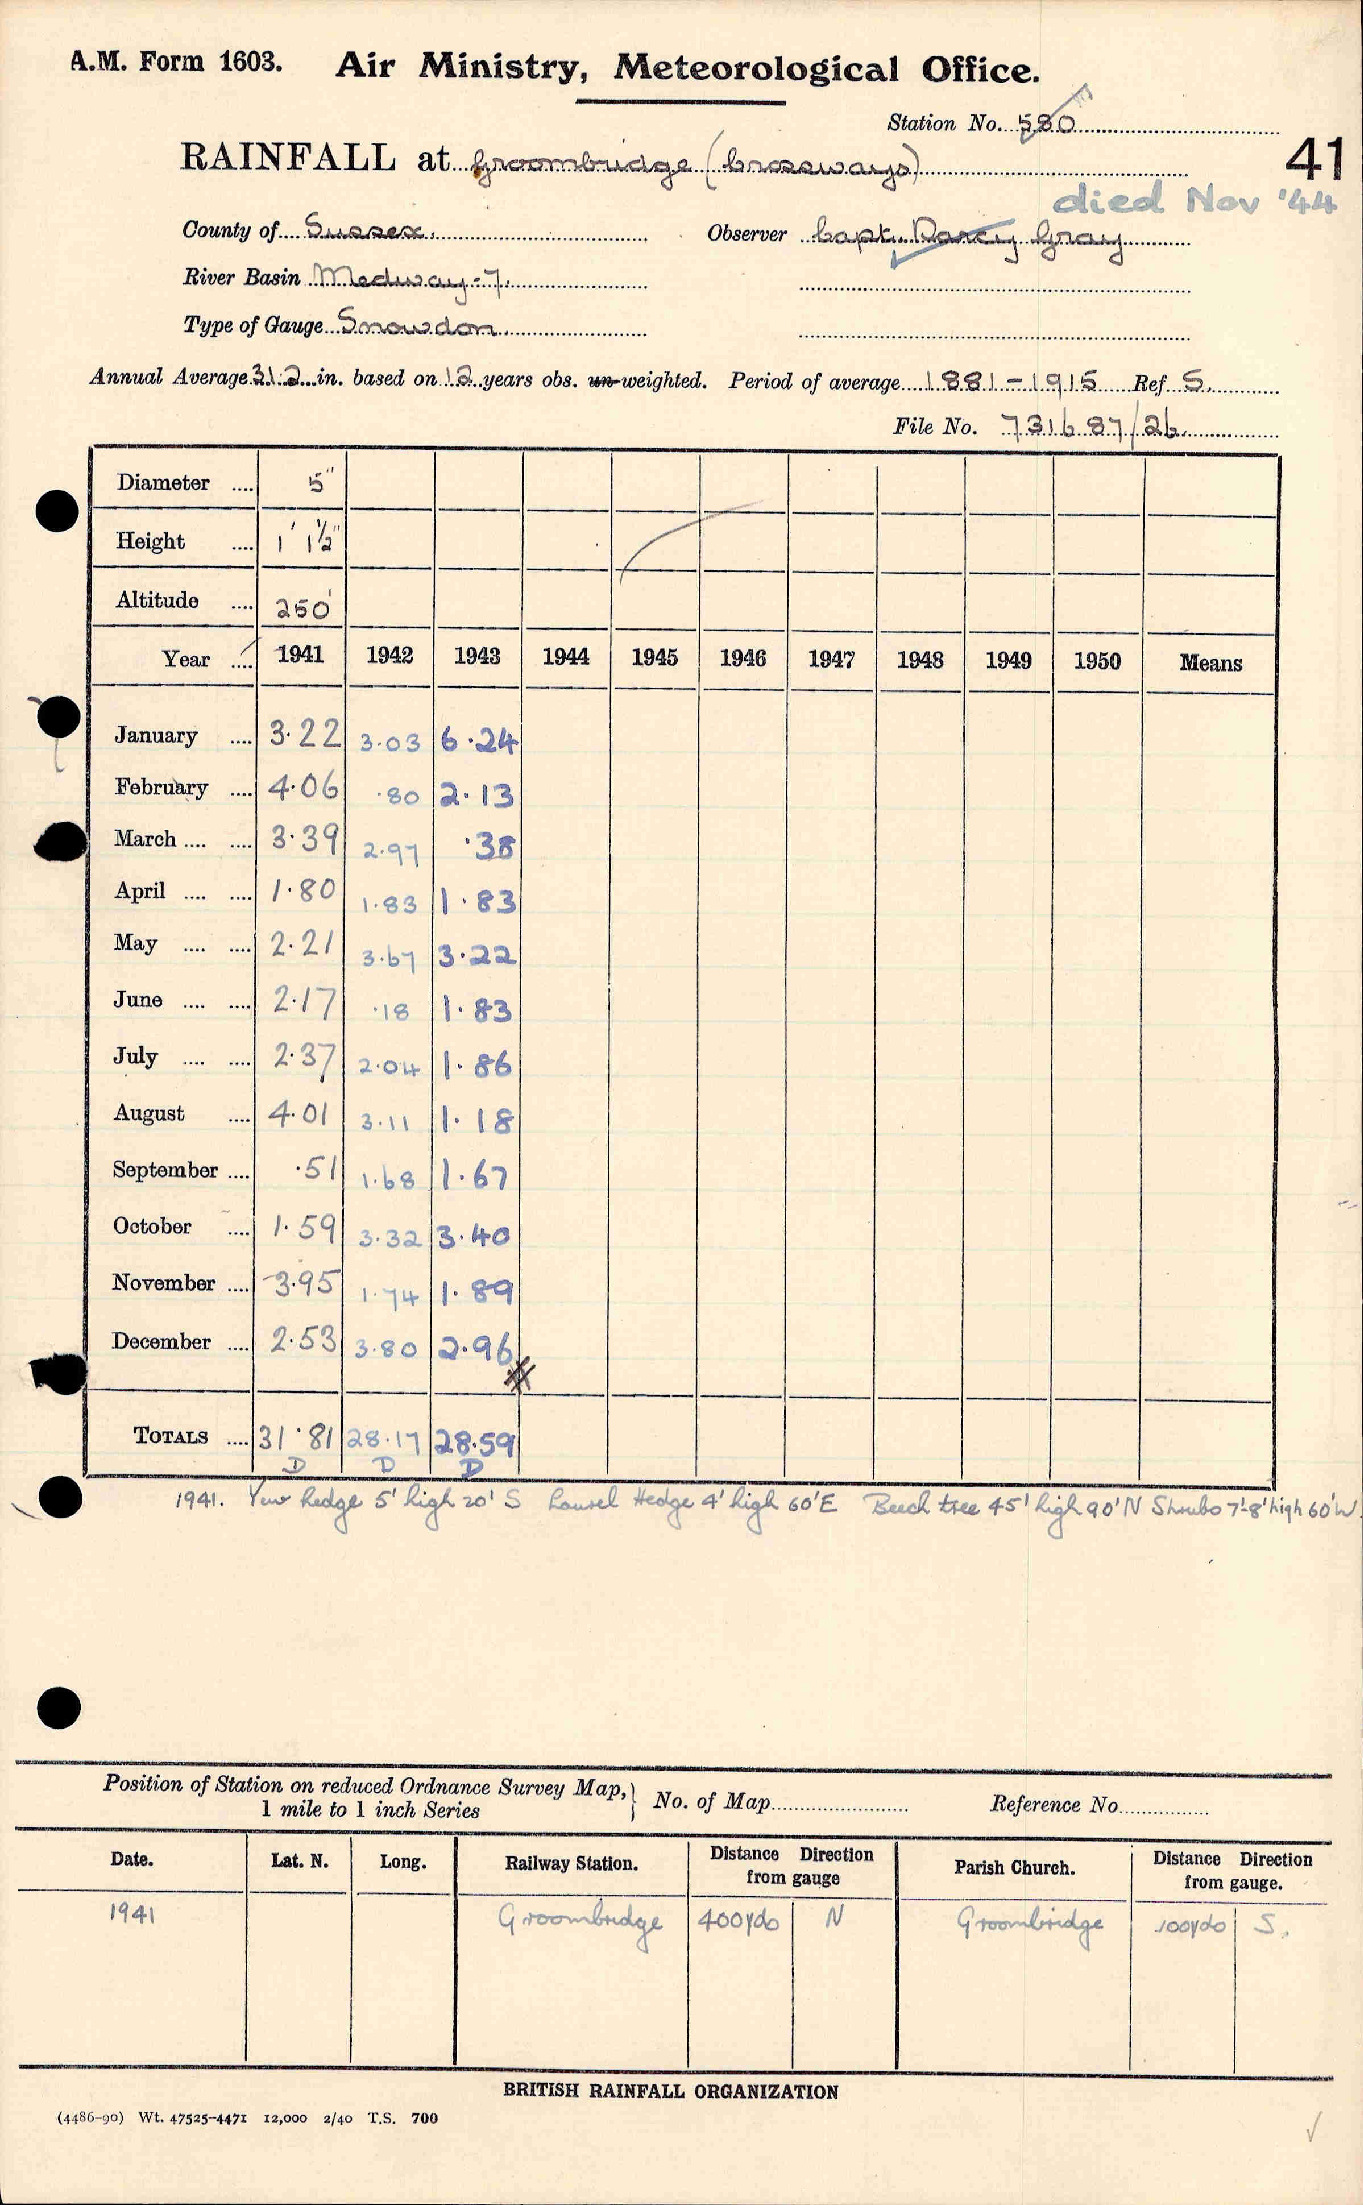 A.M. Form 1603. Air Ministry, Meteorological Office.
Station No. 580
RAINFALL at Groombridge (Crossways) 41
died Nov '44
County of Sussex. Observer Capt. Darcy Gray
River Basin Medway-7.
Type of Gauge Snowdon
Annual Average 31.2 in. based on 12 years obs. un-weighted. Period of average 1881-1915 Ref S.
File No. 731687/26
Diameter .... 5"
Height .... 1' 1½"
Altitude .... 250'
Year .... 1941 1942 1943 1944 1945 1946 1947 1948 1949 1950 Means
January .... 3.22 3.03 6.24
February .... 4.06 .80 2.13
March .... .... 3.39 2.97 .38
April .... .... 1.80 1.83 1.83
May .... .... 2.21 3.67 3.22
June .... .... 2.17 .18 1.83
July .... .... 2.37 2.04 1.86
August .... 4.01 3.11 1.18
September .... .51 1.68 1.67
October .... 1.59 3.32 3.40
November .... 3.95 1.74 1.89
December .... 2.53 3.80 2.96
TOTALS .... 31.81 28.17 28.59
D D D
1941. Yew hedge 5' high 20' S Laurel Hedge 4' high 60' E Beech tree 45' high 90' N Shrubs 7'-8' high 60' W.
Position of Station on reduced Ordnance Survey Map, 1 mile to 1 inch Series } No. of Map Reference No.
Date. Lat. N. Long. Railway Station. Distance Direction from gauge Parish Church. Distance Direction from gauge.
1941 Groombridge 400yds N Groombridge 100yds S.
BRITISH RAINFALL ORGANIZATION
(4486-90) Wt. 47525-4471 12,000 2/40 T.S. 700